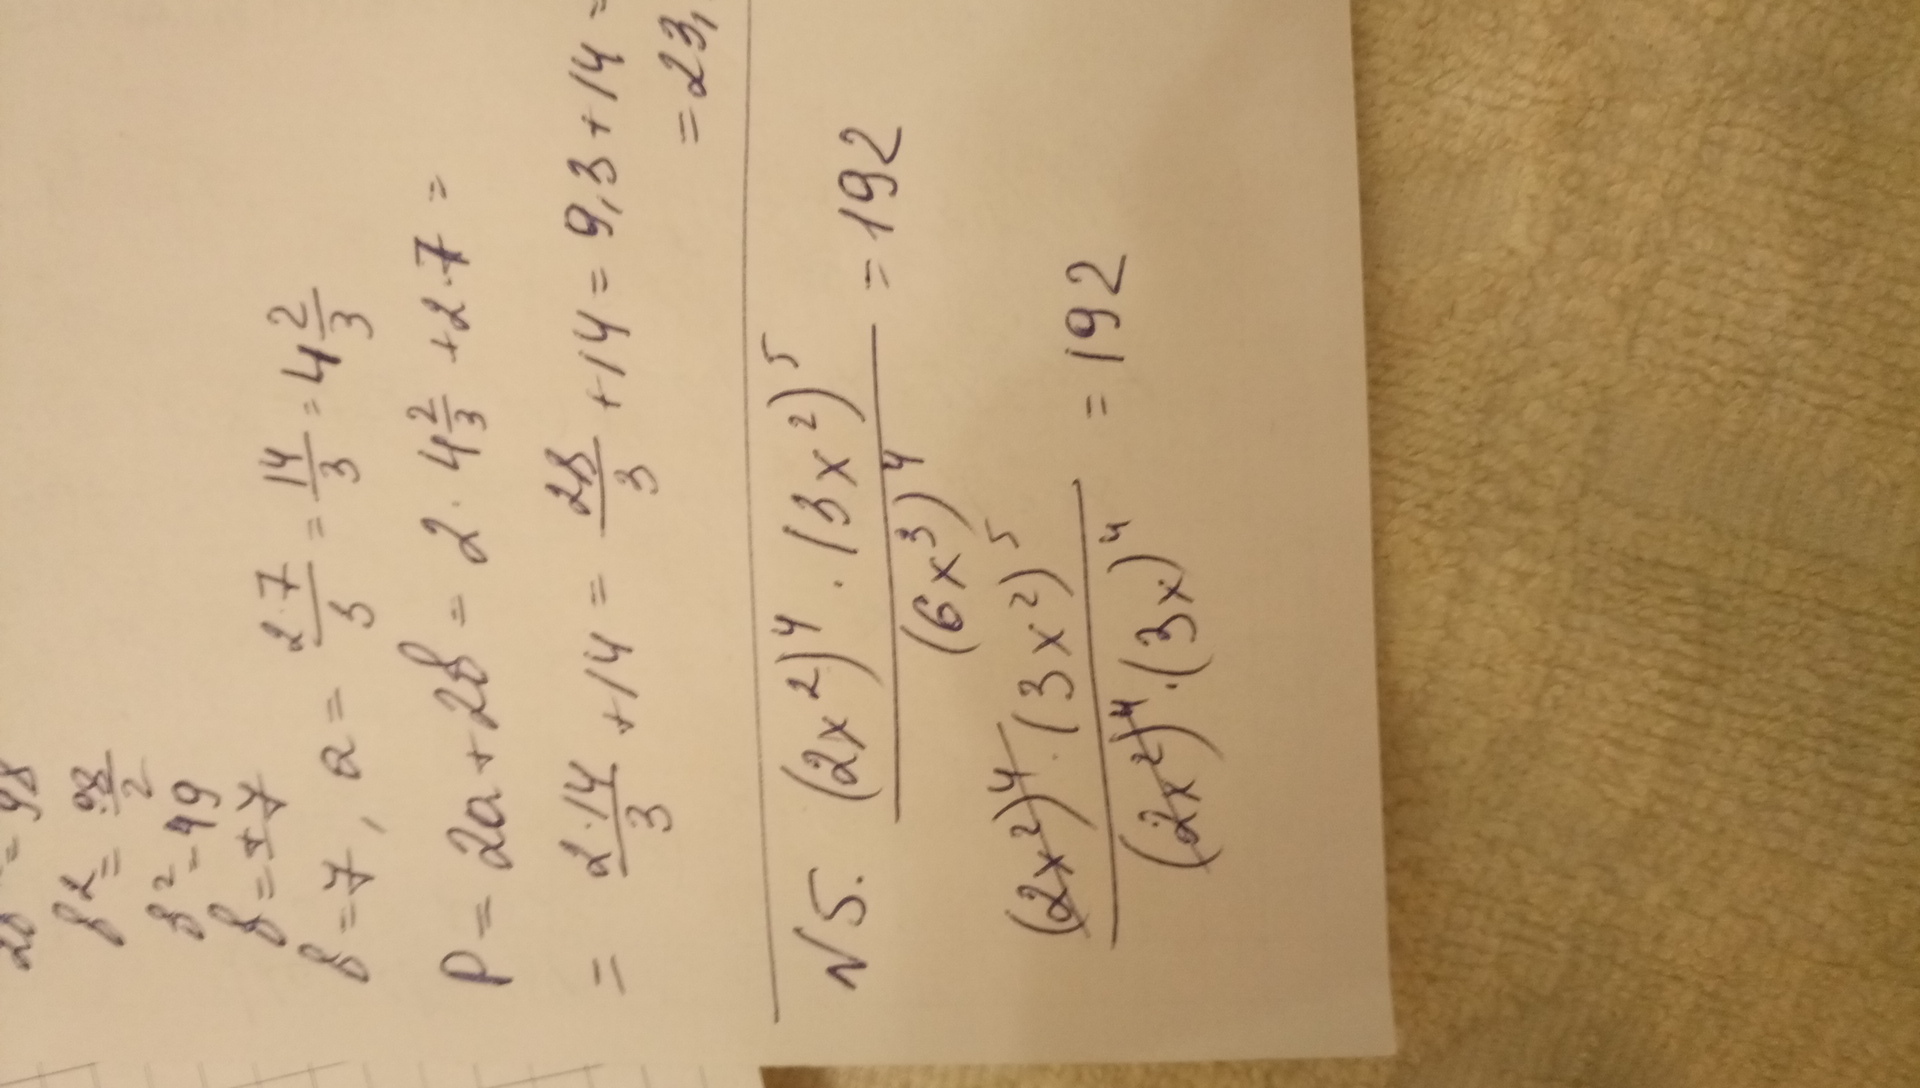 = 98
b² = 98/2
b² = 49
b = ±7
b = 7, a = 2·7/3 = 14/3 = 4 2/3
P = 2a + 2b = 2 · 4 2/3 + 2·7 =
= 2·14/3 + 14 = 28/3 + 14 = 9,3 + 14 =
= 23,
N5. (2x²)⁴ · (3x²)⁵ / (6x³)⁴ = 192
(2x²)⁴ · (3x²)⁵ / (2x²)⁴ · (3x)⁴ = 192